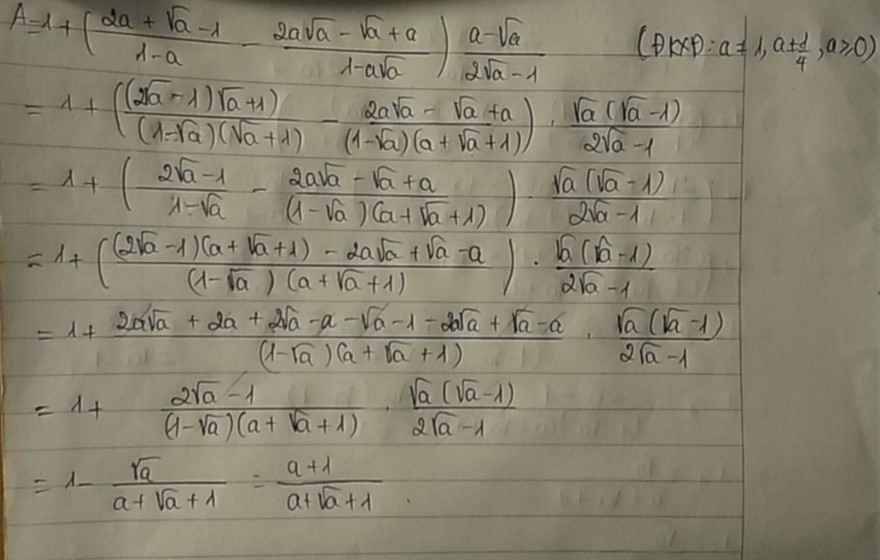 A=1+(\frac{2a+√a-1}{1-a} - \frac{2a√a-√a+a}{1-a√a}) \frac{a-√a}{2√a-1} (ĐKXĐ: a≠1, a≠\frac{1}{4}, a≥0)
= 1 + (\frac{(2√a-1)√a+1)}{(1-√a)(√a+1)} - \frac{2a√a-√a+a}{(1-√a)(a+√a+1)}) . \frac{√a(√a-1)}{2√a-1}
= 1 + (\frac{2√a-1}{1-√a} - \frac{2a√a-√a+a}{(1-√a)(a+√a+1)}) . \frac{√a(√a-1)}{2√a-1}
= 1 + (\frac{(2√a-1)(a+√a+1)-2a√a+√a-a}{(1-√a)(a+√a+1)}) . \frac{√a(√a-1)}{2√a-1}
= 1 + \frac{2a√a+2a+2√a-a-√a-1-2a√a+√a-a}{(1-√a)(a+√a+1)} . \frac{√a(√a-1)}{2√a-1}
= 1 + \frac{2√a-1}{(1-√a)(a+√a+1)} . \frac{√a(√a-1)}{2√a-1}
= 1 - \frac{√a}{a+√a+1} = \frac{a+1}{a+√a+1} .